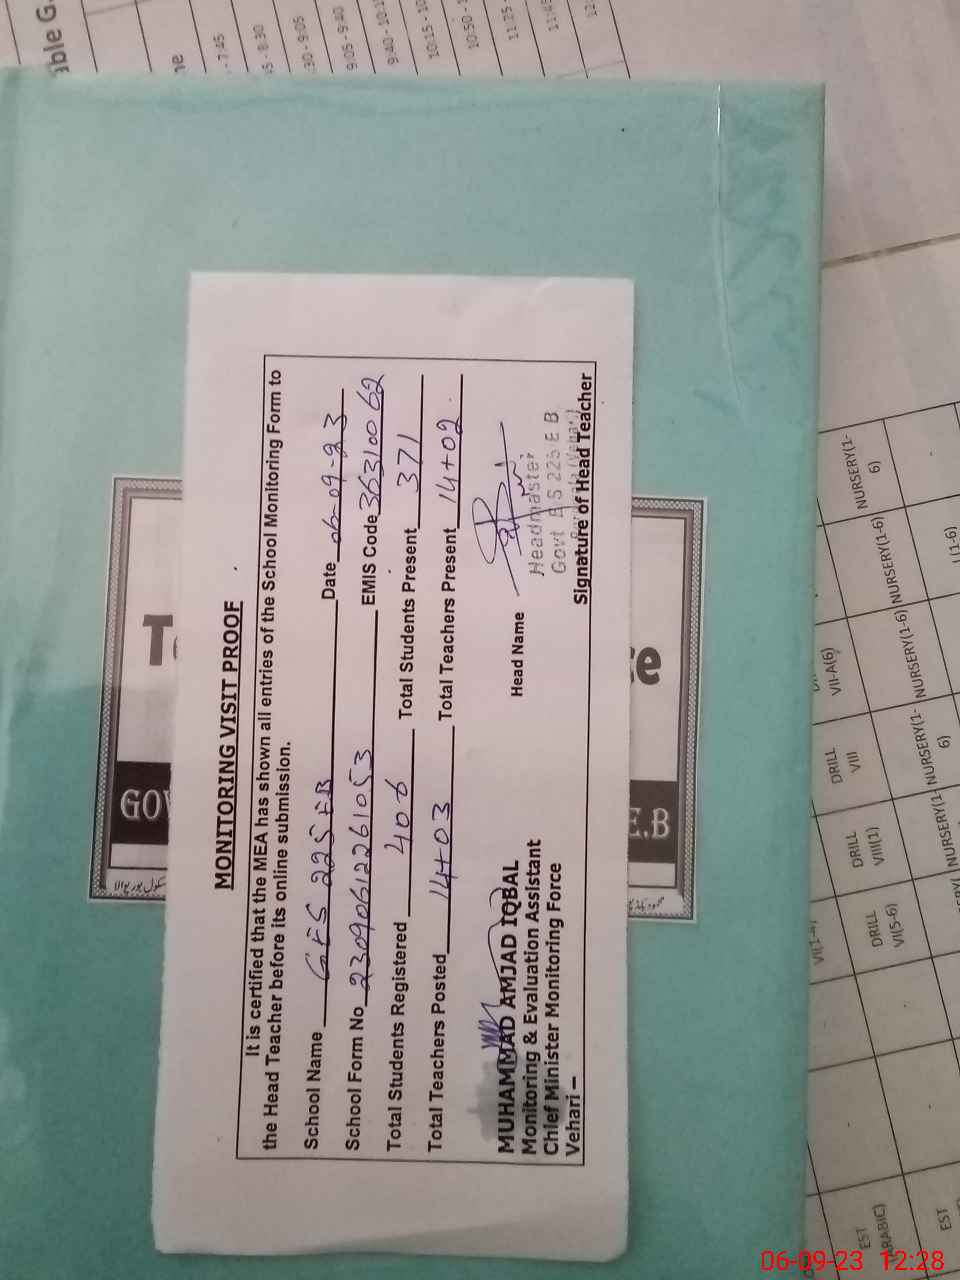 MONITORING VISIT PROOF
It is certified that the MEA has shown all entries of the School Monitoring Form to
the Head Teacher before its online submission.
School Name GES 225 EB Date 06-09-23
School Form No 230906122261053 EMIS Code 36310062
Total Students Registered 406 Total Students Present 371
Total Teachers Posted 14+03 Total Teachers Present 14+02
MUHAMMAD AMJAD IQBAL
Monitoring & Evaluation Assistant
Chief Minister Monitoring Force
Vehari –
Head Name
Headmaster
Govt E S 225 E B
Signature of Head Teacher
GOV
E.B
able G.
- 7:45
- 8:30
:30 - 9:05
9:05 - 9:40
9:40 - 10:1
10:15 - 10
10:50 -
11:25
11:45
12:
NURSERY(1-
6)
VII-A(6) NURSERY(1-6) NURSERY(1-6)
DRILL
VIII
NURSERY(1-
6)
DRILL
VIII(1)
NURSERY(1-
DRILL
VI(5-6)
VI(1-4)
EST
ARABIC)
EST
06-09-23 12:28